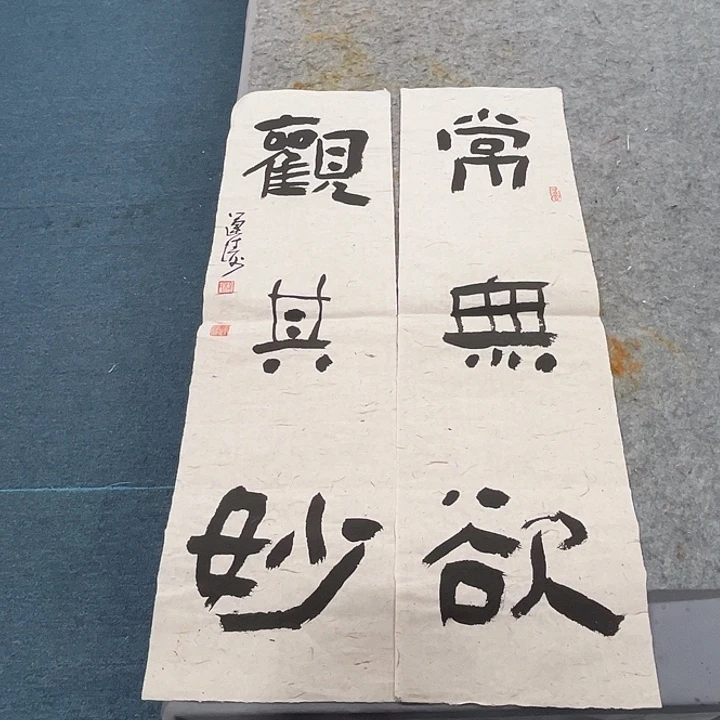 常無欲
觀其妙